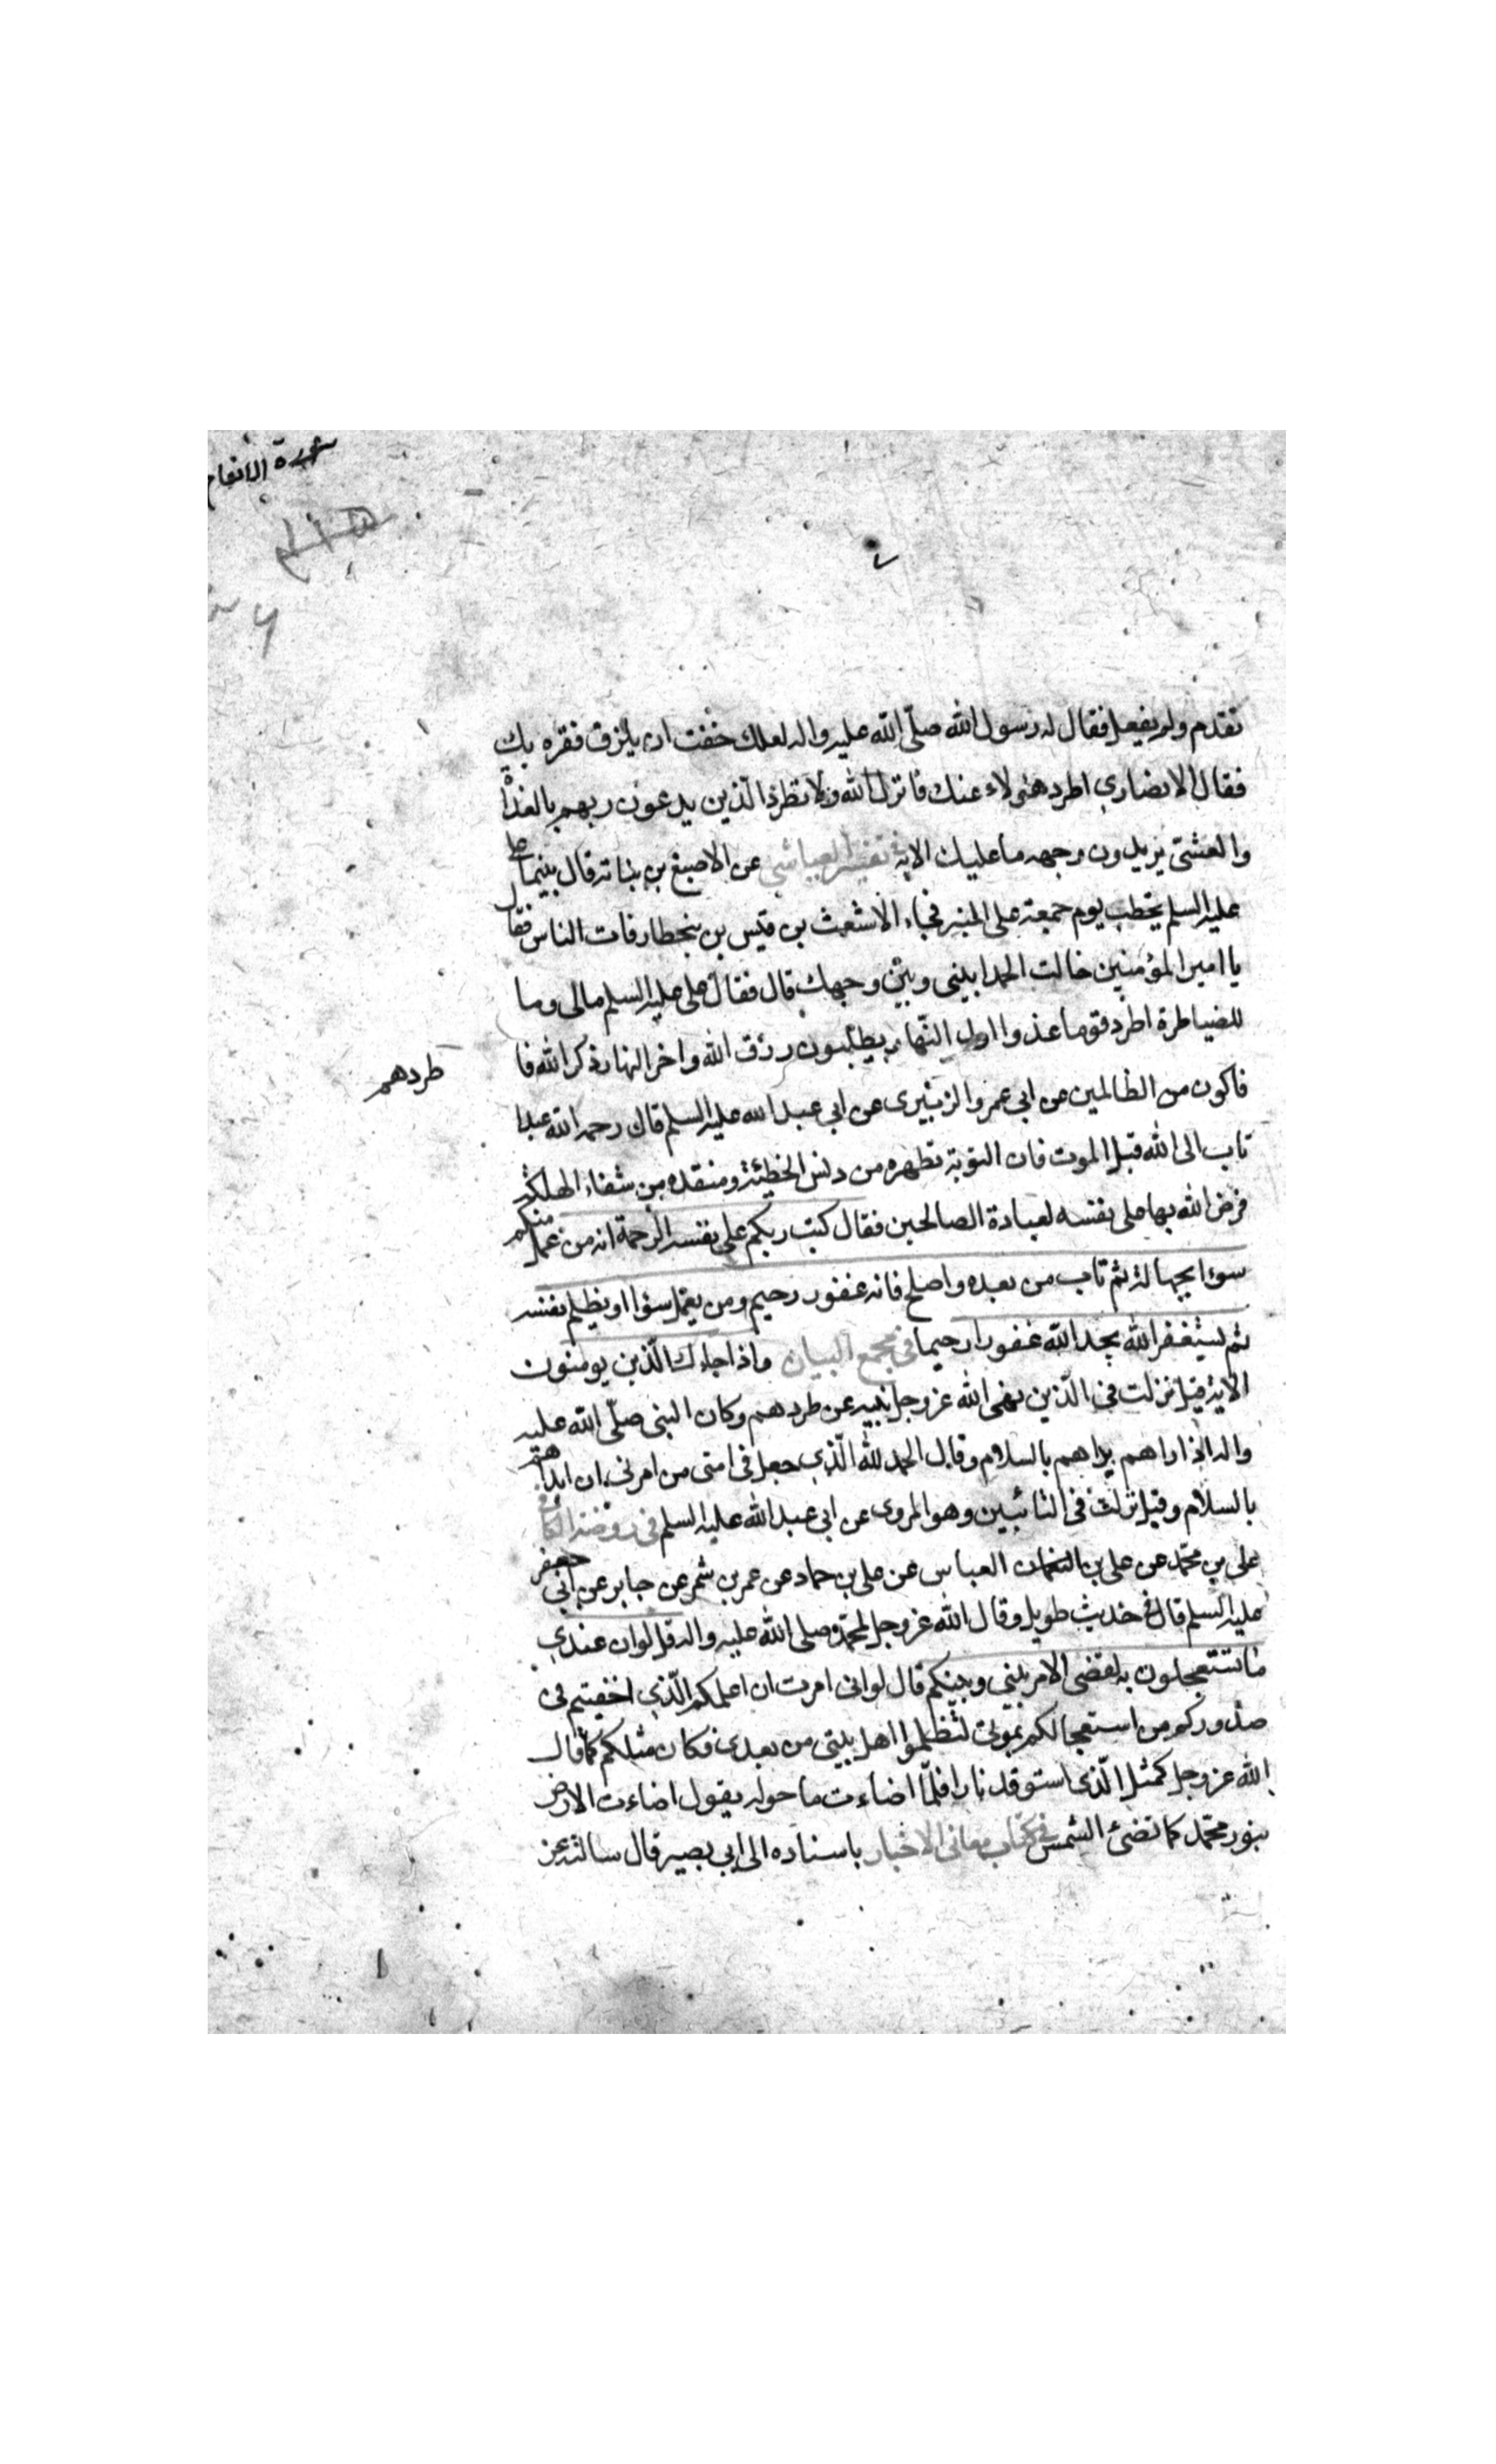 سورة الانعام
تقدم ولم يفعل فقال له رسول الله صلّى الله عليه واله لعلك خفت ان يلزق فقره بك
فقال الانصارى اطرد هؤلاء عنك فانزل الله ولا تطرد الّذين يدعون ربهم بالغداة
والعشىّ يريدون وجهه ما عليك الاية فى تفسير العياشى عن الاصبغ بن نباته قال بينما على
عليه السلم يخطب يوم جمعة على المنبر فجاء الاشعث بن قيس بن يتخطا رقاب الناس فقال
يا امير المؤمنين حالت الحمدا بينى وبين وجهك قال فقال على عليه السلم مالى وما
للضياطرة اطرد قوما غذوا اول النّهار يطلبون رزق الله واخر النهار ذكر الله فا
طردهم
فاكون من الظالمين عن ابى عمرو الزبيرى عن ابى عبد الله عليه السلم قال رحم الله عبدا
تاب الى الله قبل الموت فان التوبة تطهره من دنس الخطيئة ومنقذه من شفاء الهلكة
فرض الله بها على نفسه لعبادة الصالحين فقال كتب ربكم على نفسه الرحمة انه من عمل منكم
سوءا بجهالة ثم تاب من بعده واصلح فانه غفور رحيم ومن يعمل سوءا او يظلم نفسه
ثم يستغفر الله يجد الله غفورا رحيما فى مجمع البيان واذا جاءك الّذين يومنون
الاية قيل نزلت فى الّذين نهى الله عز وجل نبيه عن طردهم وكان النبى صلّى الله عليه
واله اذا راهم بداهم بالسلام وقال الحمد لله الّذى جعل فى امتى من امرنى ان ابداهم
بالسلام وقيل نزلت فى التائبين وهو المروى عن ابى عبد الله عليه السلم فى روضة الكافى
على بن محمّد عن على بن العباس عن على بن حماد عن عمر بن شمر عن جابر عن ابى جعفر
عليه السلم قال فى حديث طويل وقال الله عز وجل لمحمّد صلى الله عليه واله قل لو ان عندى
ما تستعجلون به لقضى الامر بينى وبينكم قال لو انى امرت ان اعلمكم الّذى اخفيتم فى
صدوركم من استعجالكم بموتى لتظلموا اهل بيتى من بعدى فكان مثلكم كما قال
الله عز وجل كمثل الّذى استوقد نارا فلمّا اضاءت ما حوله يقول اضاءت الارض
بنور محمّد كما تضئ الشمس فى كتاب معانى الاخبار باسناده الى ابى بصير قال سالته عن